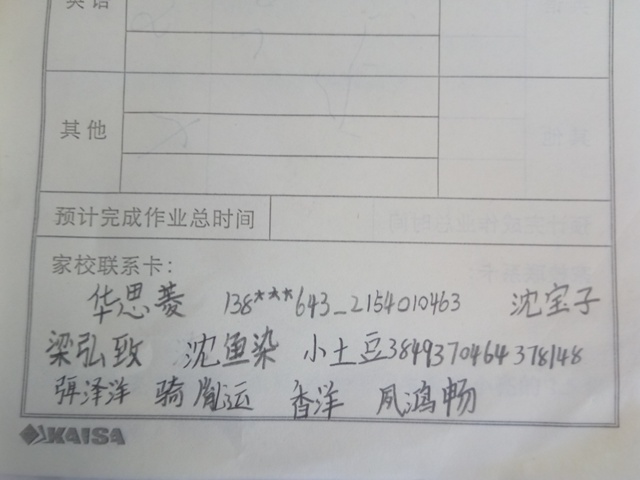 英语
其他
预计完成作业总时间
家校联系卡:
华思菱 138***643_2154010463 沈宝子
梁弘致 沈鱼染 小土豆3849370464378148
弭泽洋 骑胤运 香洋 凤鸿畅
KAISA